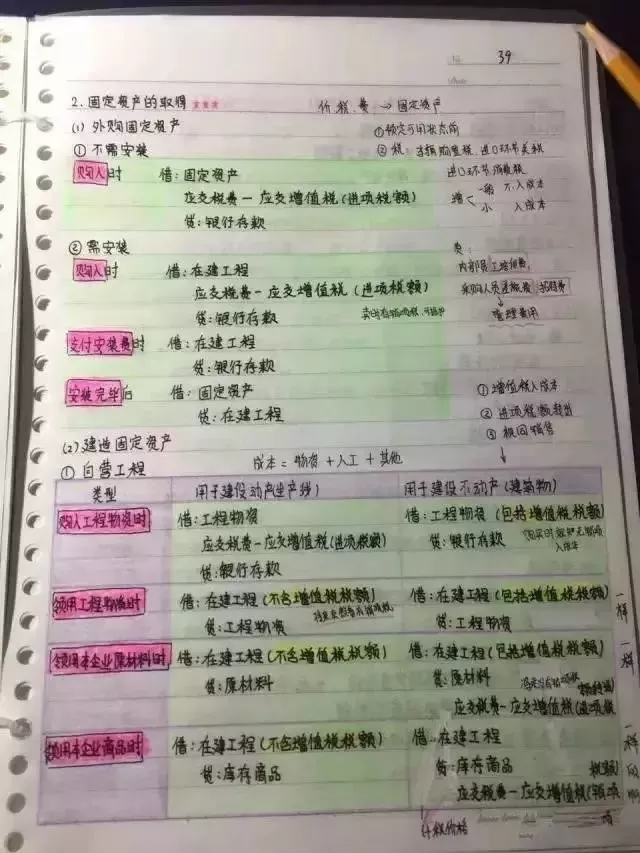 No. 39
2.固定资产的取得 ★★★ 价、税、费 → 固定资产
(1) 外购固定资产 ①预定可用状态前
① 不需安装 ② 税: 车辆购置税,进口环节关税
进口环节消费税
购入时 借:固定资产
增< 一般 不入成本
应交税费一应交增值税(进项税额)
小 入成本
贷:银行存款
② 需安装 费:
购入时 借:在建工程
应交税费一应交增值税(进项税额)
采购人员差旅费
贷:银行存款
管理费用
支付安装费时 借:在建工程
贷:银行存款
安装完毕后 借:固定资产 ① 增值税入成本
贷:在建工程 ② 进项税额转出
③ 视同销售
(2) 建造固定资产
① 自营工程 成本=物资+人工+其他
类型 用于建设动产(生产线) 用于建设不动产(建筑物)
购入工程物资时 借:工程物资 借:工程物资(包括增值税税额)
应交税费一应交增值税(进项税额) 贷:银行存款
入成本
贷:银行存款
领用工程物资时 借:在建工程(不含增值税税额) 借:在建工程(包括增值税税额) 一样
贷:工程物资 贷:工程物资
领用本企业原材料时 借:在建工程(不含增值税税额) 借:在建工程(包括增值税税额) 一样
贷:原材料 贷:原材料
应交税费一应交增值税(进项税额转出)
领用本企业商品时 借:在建工程(不含增值税税额) 借:在建工程
贷:库存商品 贷:库存商品
应交税费一应交增值税(销项税额)
计税价格